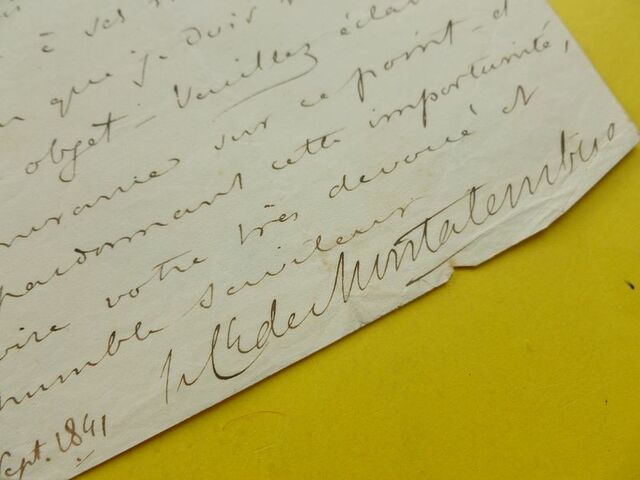 à ses
que je dois
objet - Veuillez éclai
sur ce point - et
pardonnant cette importunité,
votre très dévoué et
humble serviteur
le Cte de Montalembert
Sept. 1841